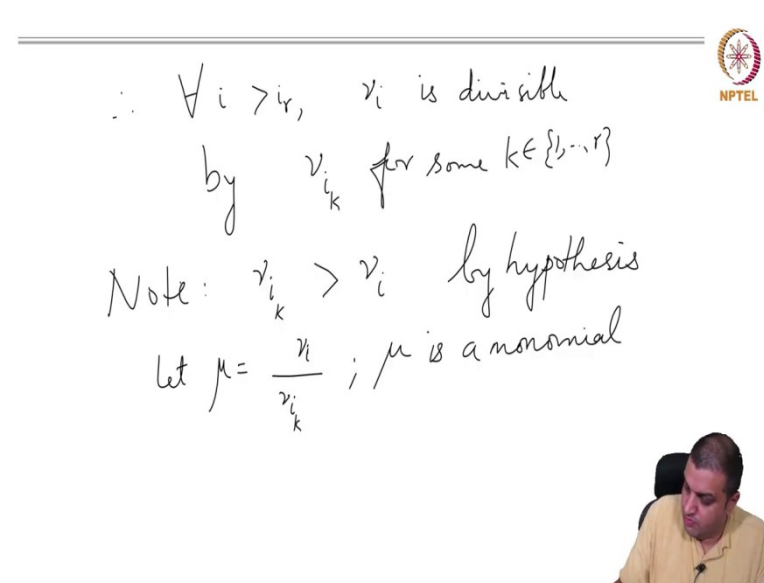 ∴ ∀ i > i_r, ν_i is divisible
by ν_{i_k} for some k ∈ {1,...,r}
Note: ν_{i_k} > ν_i by hypothesis
Let μ = ν_i / ν_{i_k} ; μ is a monomial
NPTEL